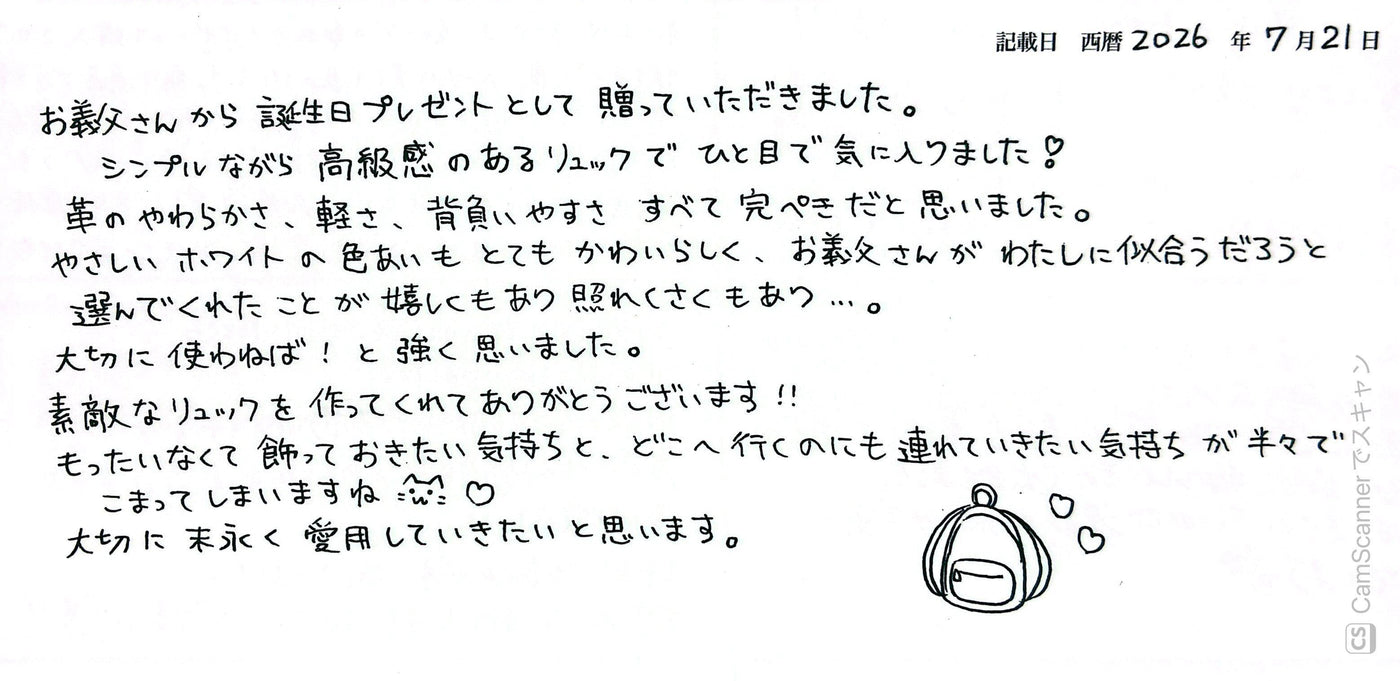 記載日 西暦 2026 年 7 月 21 日
お義父さんから誕生日プレゼントとして贈っていただきました。
シンプルながら高級感のあるリュックでひと目で気に入りました♡
革のやわらかさ、軽さ、背負いやすさすべて完ぺきだと思いました。
やさしいホワイトの色あいもとてもかわいらしく、お義父さんがわたしに似合うだろうと
選んでくれたことが嬉しくもあり照れくさくもあり…。
大切に使わねば!と強く思いました。
素敵なリュックを作ってくれてありがとうございます!!
もったいなくて飾っておきたい気持ちと、どこへ行くのにも連れていきたい気持ちが半々で
こまってしまいますね♡
大切に末永く愛用していきたいと思います。
CS CamScannerでスキャン